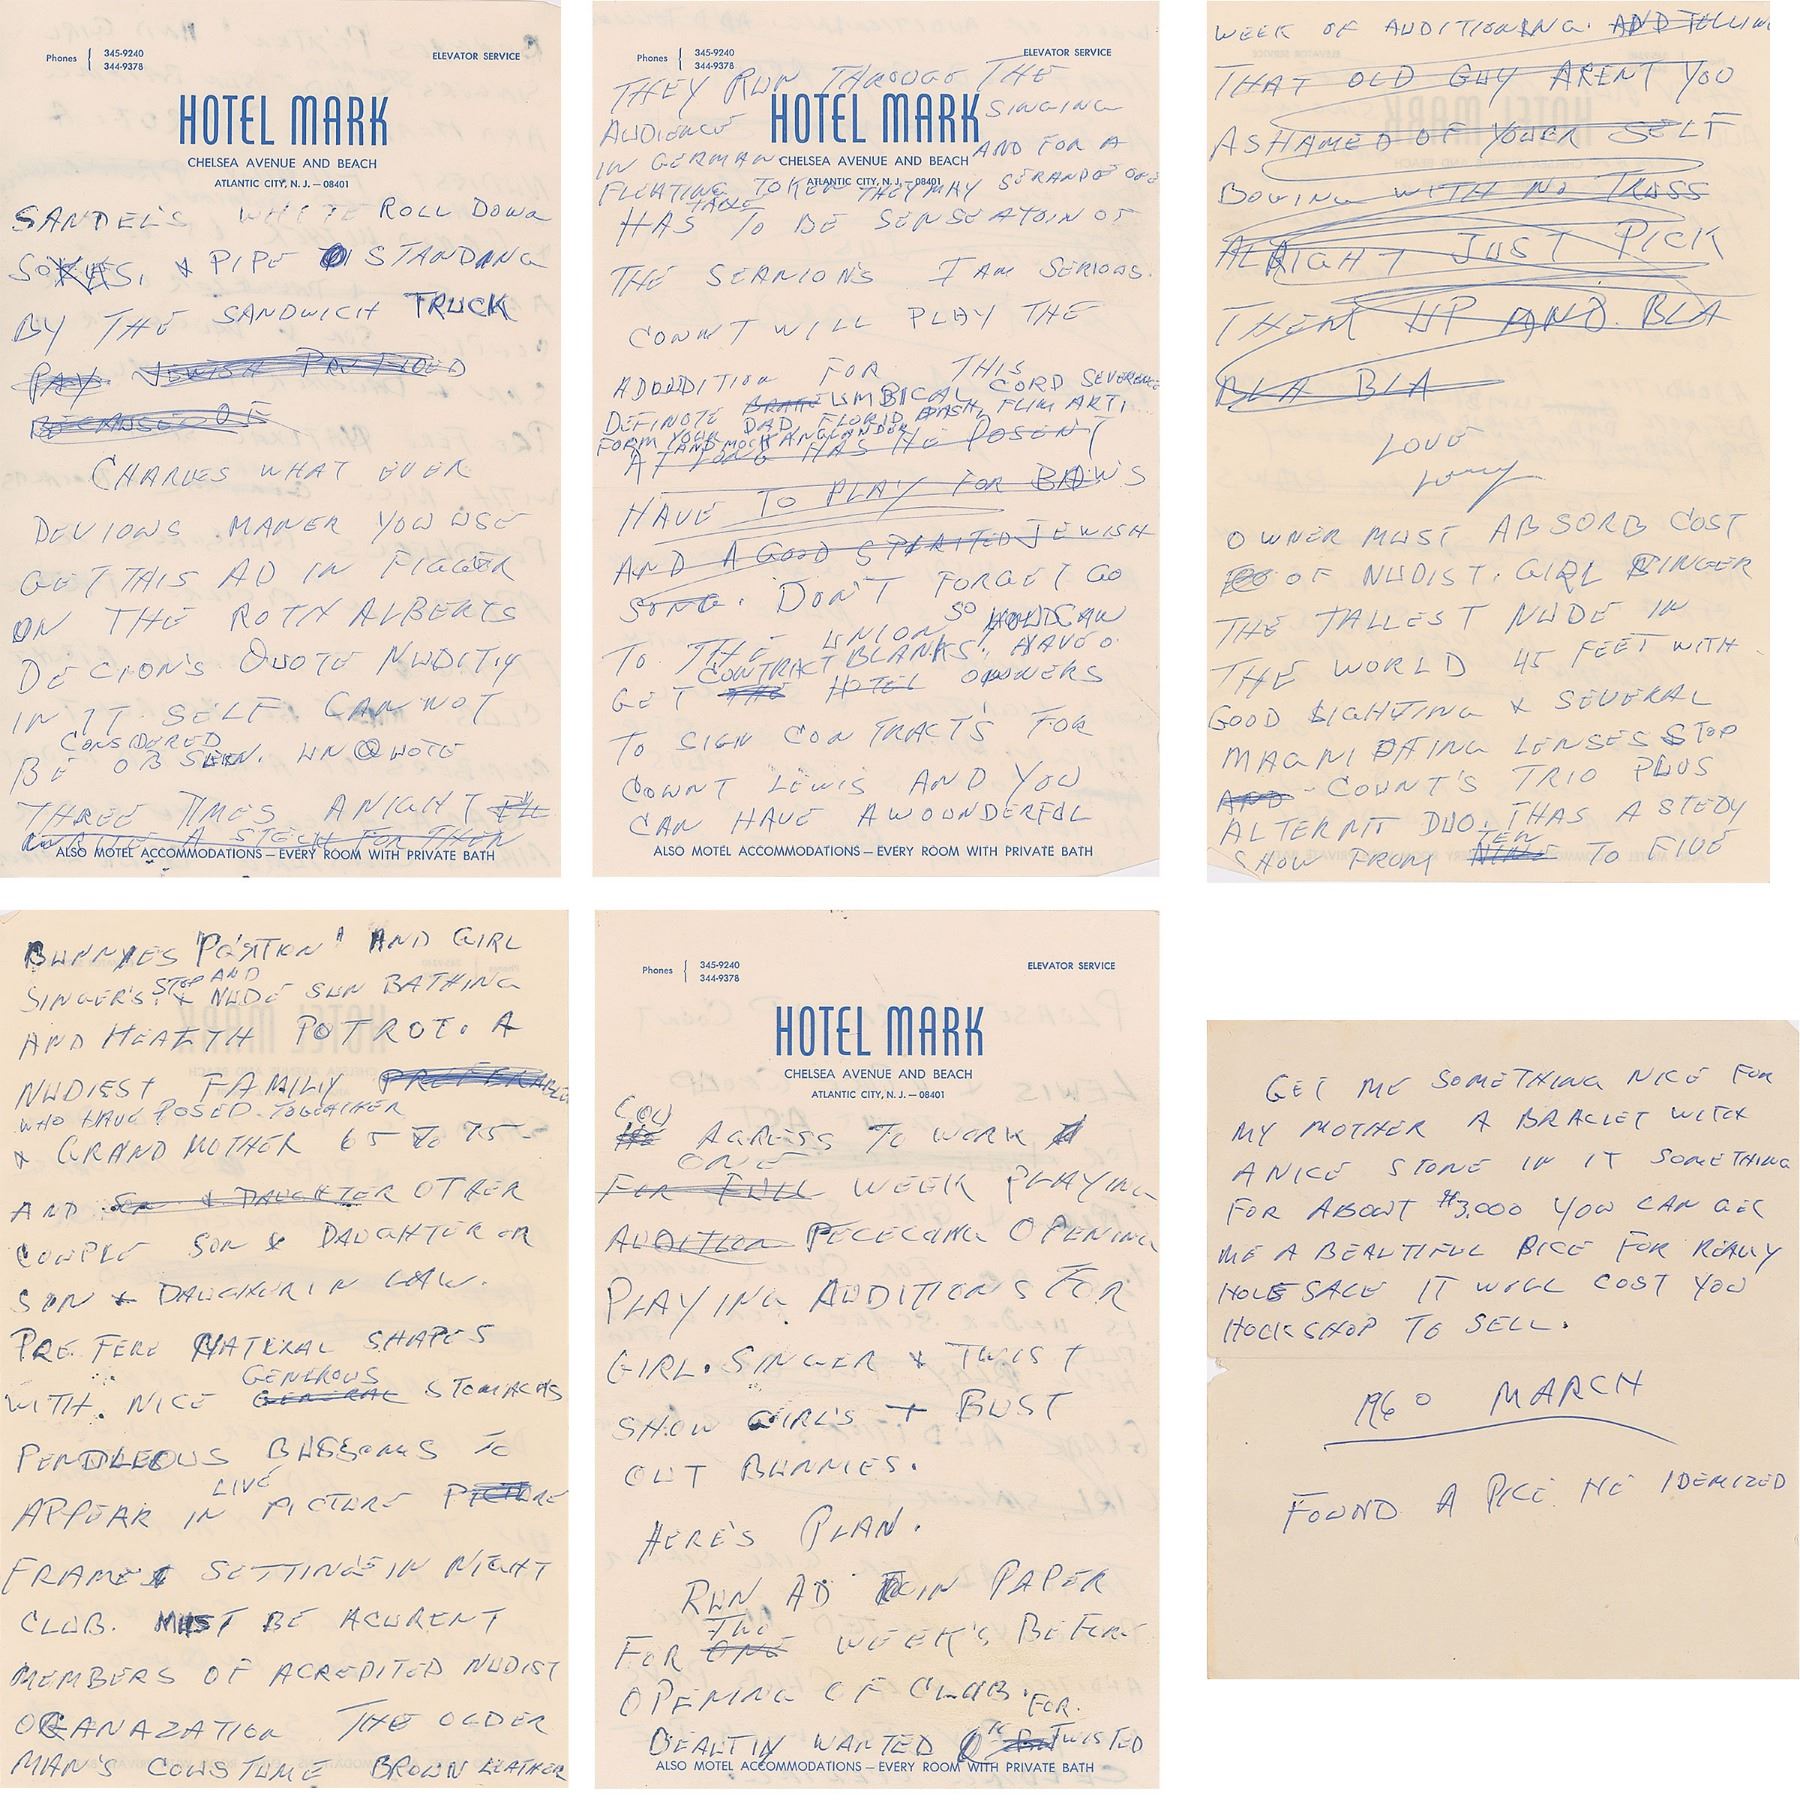 Phones 345-9240
344-9378
ELEVATOR SERVICE
HOTEL MARK
CHELSEA AVENUE AND BEACH
ATLANTIC CITY, N. J. — 08401
SANDEL'S WHITE ROLL DOWN
SOXES, & PIPE STANDANG
BY THE SANDWICH TRUCK
PAY. JEWISH
BECAUSE OF
CHARLES WHAT EVER
DEVIOWS MANER YOU USE
GET THIS AD IN FIGGER
ON THE ROTH ALBERTS
DECION'S QUOTE NUDITIY
IN IT SELF CAN NOT
CONSIDERED
BE OBSEEN. UN QUOTE
THREE TIMES A NIGHT I'LL
A STECH FOR THEN
ALSO MOTEL ACCOMMODATIONS — EVERY ROOM WITH PRIVATE BATH
Phones 345-9240
344-9378
ELEVATOR SERVICE
THEY RUN THROUGE THE
HOTEL MARK
AUDIENCE SINGING
IN GERMAN CHELSEA AVENUE AND BEACH AND FOR A
ATLANTIC CITY, N. J. — 08401
FLEATING TOKEN THEY MAY SERANDE ONE
TABLE
HAS TO BE SENSEATOIN OF
THE SEANION'S I AM SERIOUS.
COUNT WILL PLAY THE
ADDUDITION FOR THIS
DEFINOTE UMBICAL CORD SEVERENCE
FORM YOUR DAD FLORID FLIM ARTI
AND MOCK ANGLANDER
AT LONG HAS HE DOSENT
HAVE TO PLAY FOR BAWS
AND A GOOD SPARITED JEWISH
SONG. DON'T FORGET GO
SO YOU CAN
TO THE UNION HAVE
CONTRACT BLANKS'
GET THE HOTEL OWNERS
TO SIGN CONTRACT'S FOR
COUNT LEWIS AND YOU
CAN HAVE A WOONDERFUL
ALSO MOTEL ACCOMMODATIONS — EVERY ROOM WITH PRIVATE BATH
WEEK OF AUDITIONENG. AND TELLING
THAT OLD GUY ARENT YOU
ASHAMED OF YOUER SELF
BOWING WITH NO TRUSS
ALRIGHT JUST PICK
THEM UP AND BLA
BLA BLA
LOVE
Lenny
OWNER MUST ABSORB COST
OF NUDIST. GIRL SINGER
THE TALLEST NUDE IN
THE WORLD 45 FEET WITH
GOOD LIGHTING & SEVERAL
MAGNIFAING LENSES STOP
AND - COUNT'S TRIO PLUS
ALTERNT DUO. THAS A STEDY
TEN
SHOW FROM NINE TO FIVE
BUNNYES POSITION' AND GIRL
STOP AND
SINGER'S. & NUDE SUN BATHING
AND HEALTH POTROT. A
NUDIEST FAMILIY PREFERABLE
WHO HAVE POSED TOGEATHER
& GRAND MOTHER 65 TO 75
AND SON & DAUGHTER OTHER
COUPLE SON & DAUGHTER OR
SON & DAUGHTUR IN LAW.
PRE FERE NATURAL SHAPES
GENEROUS
WITH. NICE GENERAL STOMACHS
PENDULEOUS BUSSOMS TO
LIVE
APPEAR IN PICTURE PICTURE
FRAME SETTING IN NIGHT
CLUB. MUST BE ACURENT
MEMBERS OF ACREDITED NUDIST
ORGANAZATION THE OLDER
MAN'S COWSTUME BROWN LEATHER
Phones 345-9240
344-9378
ELEVATOR SERVICE
HOTEL MARK
CHELSEA AVENUE AND BEACH
ATLANTIC CITY, N. J. — 08401
COU
HE AGREES TO WORK
ONE
FOR FULL WEEK PLAYING
AUDITION PECECING OPENING
PLAYING AUDDITIONS FOR
GIRL. SINGER & TWIST
SHOW GIRL'S + BUST
OUT BUNNIES.
HERE'S PLAN.
RUN AD IN PAPER
TWO
FOR ONE WEEK'S BEFORE
OPENING OF CLUB. FOR.
BEAUTIY WANTED TWISTED
ALSO MOTEL ACCOMMODATIONS — EVERY ROOM WITH PRIVATE BATH
GET ME SOMETHING NICE FOR
MY MOTHER A BRACLET WITH
A NICE STONE IN IT SOMETHING
FOR ABOUT $3,000 YOU CAN GET
ME A BEAUTIFUL PICE FOR REALLY
HOLESALE IT WILL COST YOU
HOCKSHOP TO SELL.
1960 MARCH
FOUND A PICE HE IDEMIZED